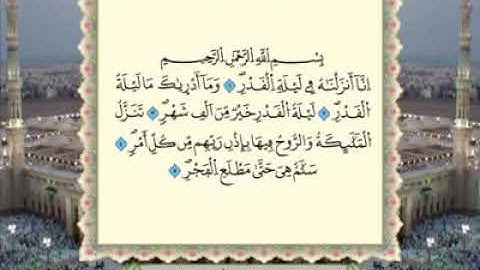 بِسْمِ اللَّهِ الرَّحْمَٰنِ الرَّحِيمِ
إِنَّا أَنزَلْنَاهُ فِي لَيْلَةِ الْقَدْرِ ۝١ وَمَا أَدْرَاكَ مَا لَيْلَةُ
الْقَدْرِ ۝٢ لَيْلَةُ الْقَدْرِ خَيْرٌ مِّنْ أَلْفِ شَهْرٍ ۝٣ تَنَزَّلُ
الْمَلَائِكَةُ وَالرُّوحُ فِيهَا بِإِذْنِ رَبِّهِم مِّن كُلِّ أَمْرٍ ۝٤
سَلَامٌ هِيَ حَتَّىٰ مَطْلَعِ الْفَجْرِ ۝٥